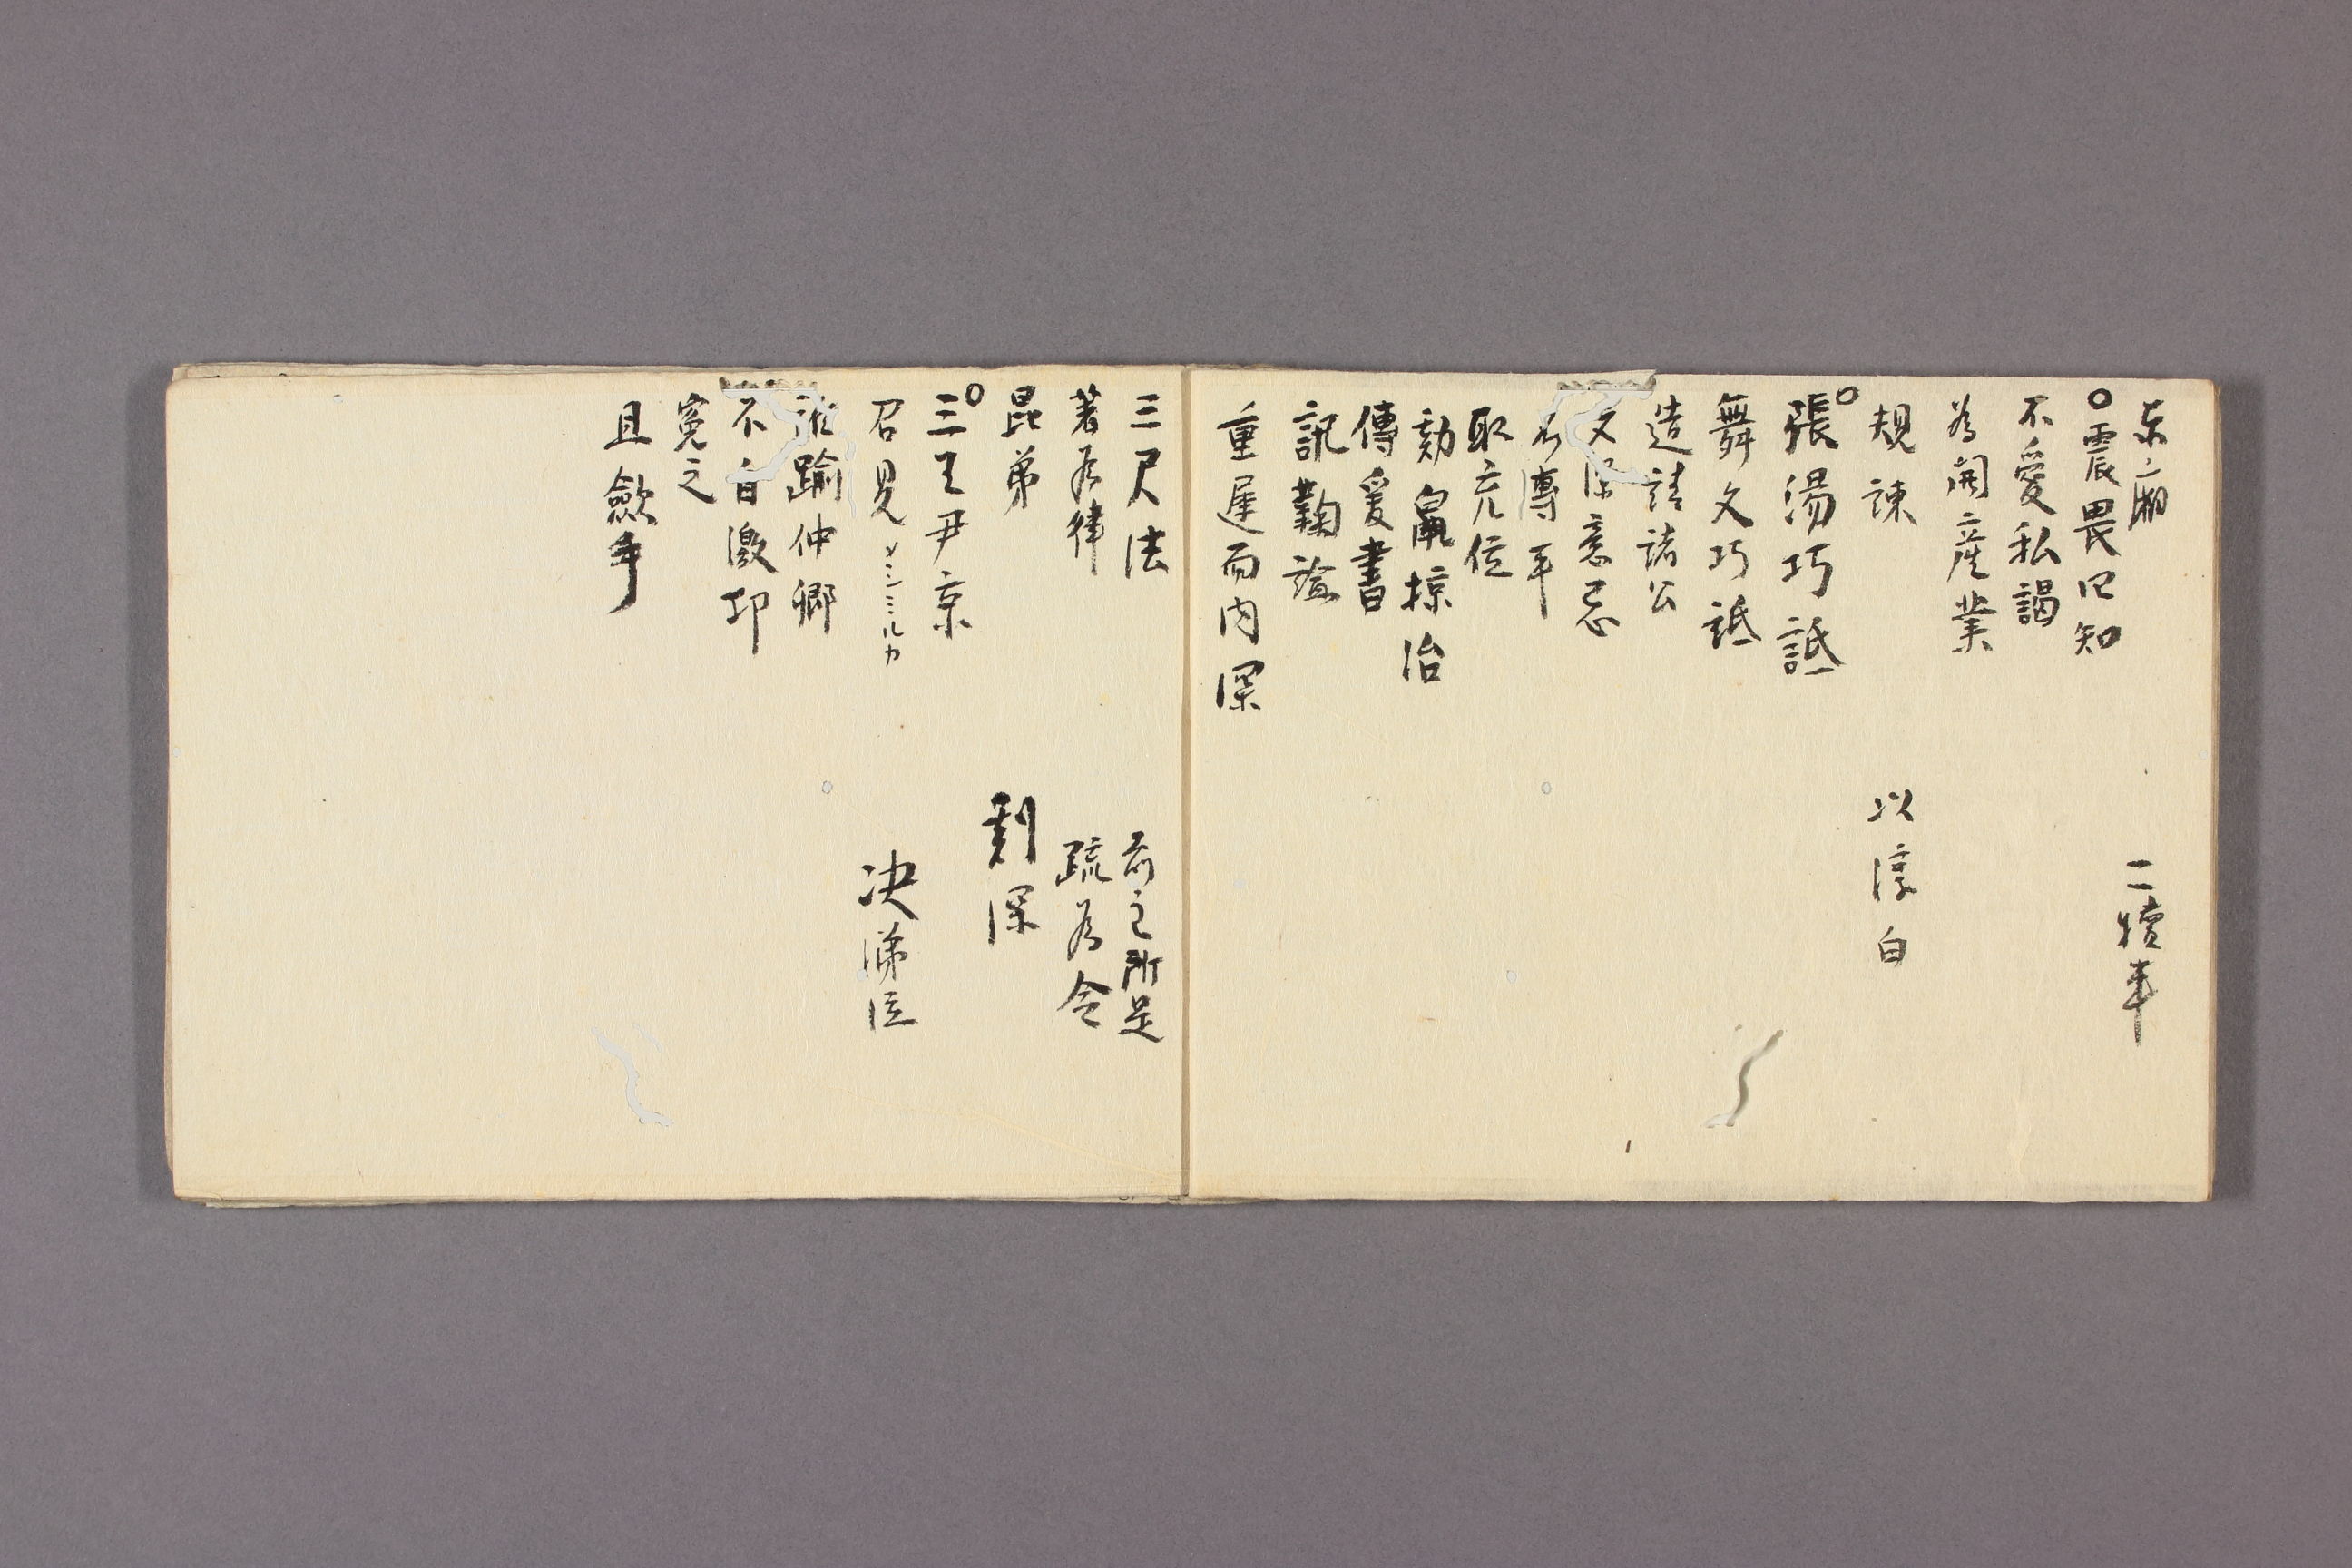 東廂
二犢車
○震畏四知
不受私謁
為開産業
規諫
以淳白
○張湯巧詆
舞文巧詆
造請諸公
文深意忌
傅平
取充位
劾鼠掠治
傳爰書
訊鞫論
重遲而内深
三尺法
前主所是
著為律
疏為令
昆弟
刻深
○三王尹京
召見メシミルカ
決
踰仲卿
不自激卬
寃之
且歛手